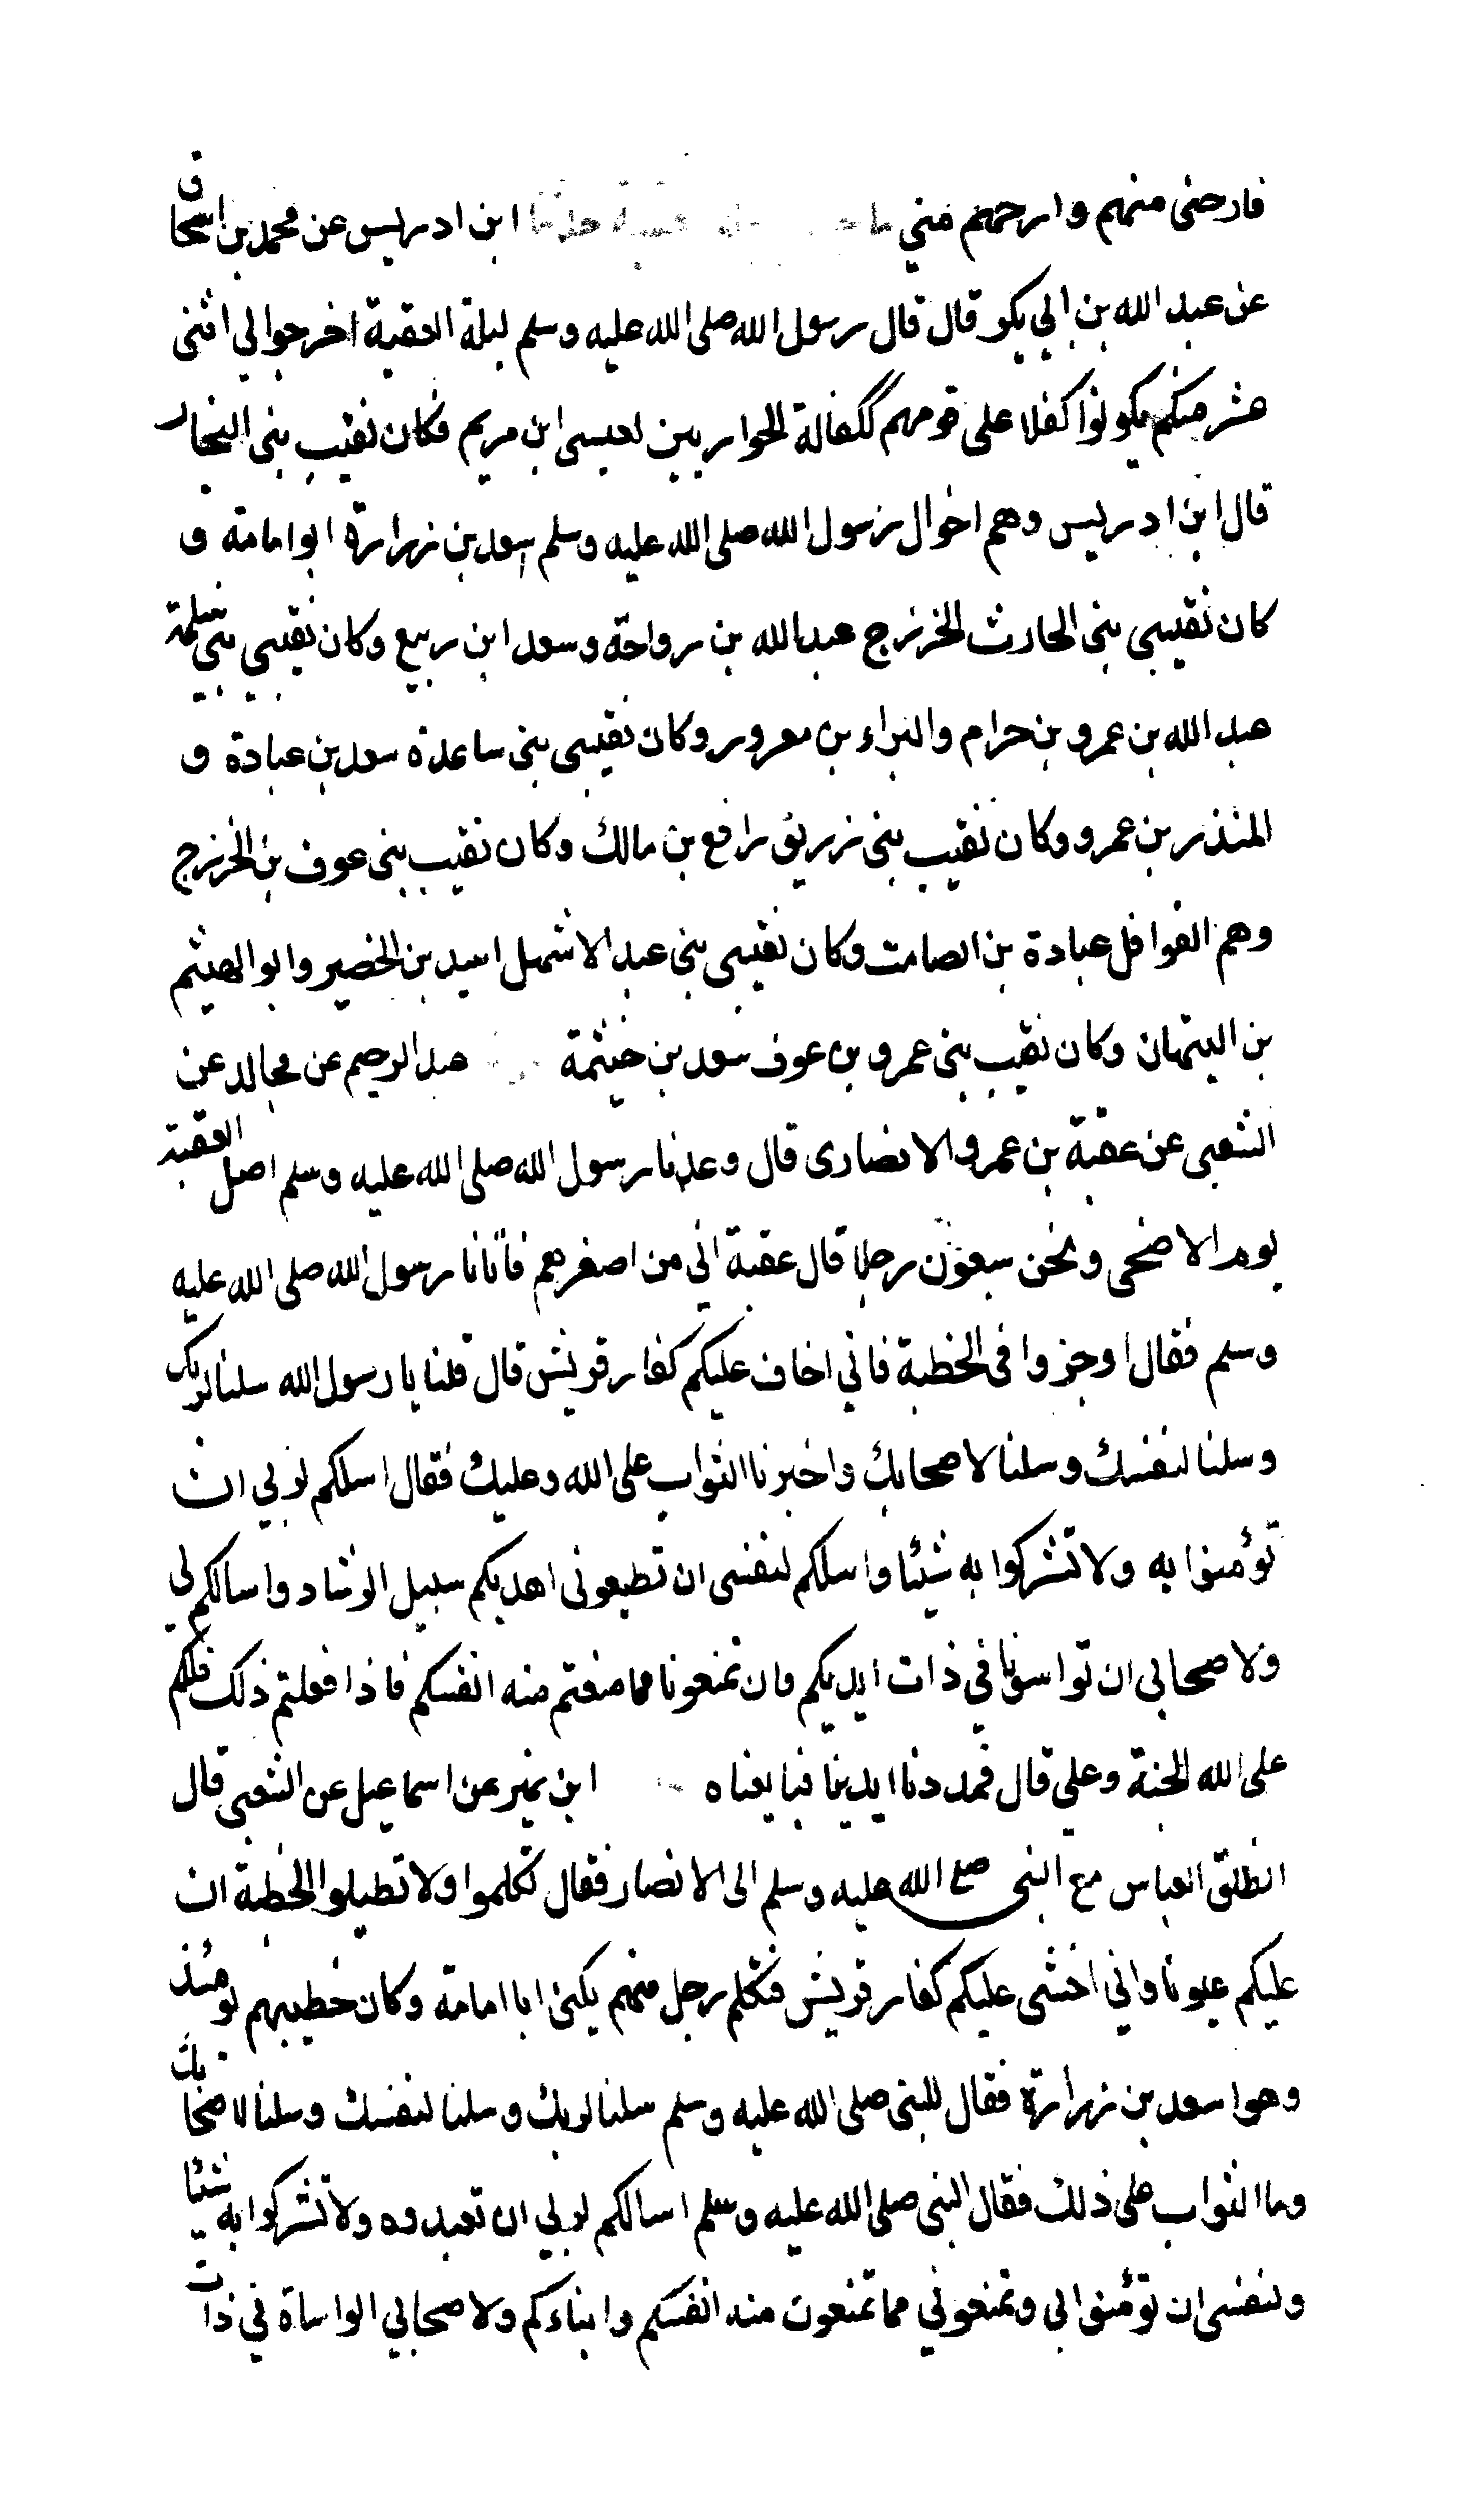 فارضى منهم وارحمهم مني ابن ادريس عن محمد بن اسحاق
عن عبد الله بن ابي بكر قال قال رسول الله صلى الله عليه وسلم ليلة العقبة اخرجوا لي اثنى
عشر منكم يكونوا كفلا على قومهم ككفالة الحواريين لعيسى ابن مريم فكان نقيب بنى النجار
قال ابن ادريس وهم اخوال رسول الله صلى الله عليه وسلم اسعد بن زرارة ابو امامة و
كان نقيبى بنى الحارث الخزرج عبد الله بن رواحة وسعد ابن ربيع وكان نقيبى بنى سلمة
عبد الله بن عمرو بن حرام والبراء بن معرور وكان نقيبى بنى ساعدة سعد بن عبادة و
المنذر بن عمرو وكان نقيب بنى زريق رافع بن مالك وكان نقيب بنى عوف بن الخزرج
وهم القوافل عبادة بن الصامت وكان نقيبى بنى عبد الاشهل اسيد بن الخضير وابو الهيثم
بن التيهان وكان نقيب بنى عمرو بن عوف سعد بن خيثمة عبد الرحيم عن مجالد عن
الشعبى عن عقبة بن عمرو الانصارى قال وعدنا رسول الله صلى الله عليه وسلم اصل العقبة
يوم الاضحى ونحن سبعون رجلا قال عقبة انى من اصغرهم فاتانا رسول الله صلى الله عليه
وسلم فقال اوجزوا فى الخطبة فاني اخاف عليكم كفار قريش قال قلنا يا رسول الله سلنا لربك
وسلنا لنفسك وسلنا لاصحابك واخبرنا الثواب على الله وعليك فقال اسلكم لربي ان
تؤمنوا به ولا تشركوا به شيئا واسلكم لنفسى ان تطيعونى اهديكم سبيل الرشاد واسالكم لي
ولاصحابى ان تواسونا في ذات ايديكم وان تمنعونا مما منعتم منه انفسكم فاذا فعلتم ذلك فلكم
على الله الجنة وعلي قال فمددنا ايدينا فبايعناه ابن نمير عن اسماعيل عن الشعبى قال
انطلق العباس مع النبى صلى الله عليه وسلم الى الانصار فقال تكلموا ولا تطيلوا الخطبة ان
عليكم عيونا واني اخشى عليكم كفار قريش فتكلم رجل منهم يكنى ابا امامة وكان خطيبهم يومئذ
وهو اسعد بن زرارة فقال للنبى صلى الله عليه وسلم سلنا لربك وسلنا لنفسك وسلنا لاصحابك
وما الثواب على ذلك فقال النبى صلى الله عليه وسلم اسالكم لربي ان تعبدوه ولا تشركوا به شيئا
ولنفسى ان تؤمنوا بى وتمنعوني مما تمنعون منه انفسكم وابناءكم ولاصحابي الواساة في ذات